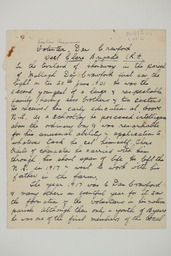 Volunteer Dan Crawford
West Clare Brigade I.R.A.
In the townland of in the parish
of Mullagh Dan Crawford first saw the
light on the 20th June 1901. He was the
second youngest of a large & respectable
family having five brothers & two sisters
He received his early education at
N.S. As a schoolboy he possessed intelligence
above the ordinary boy & was remarkable
for his unusual ability & application to
whatever task he set himself. This
trait of character he carried with him
through his short span of life. He left the
N.S. in 1917 & went to work with his
father on the farm.
The year 1917 was to Dan Crawford
& many others an eventful year for it saw
the formation of the Volunteers in his native
parish. Although then only a youth of 16 years
he was one of the first members of the local